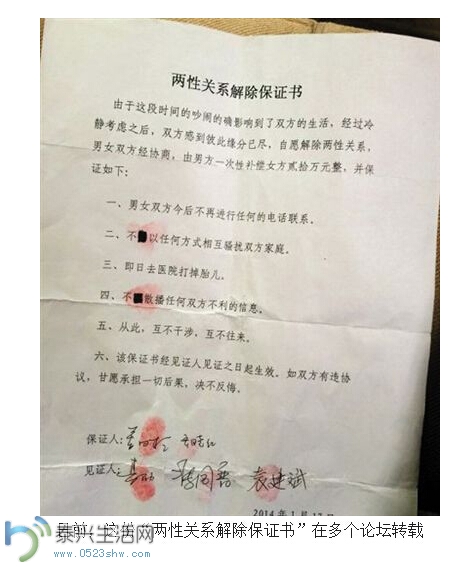 两性关系解除保证书
由于这段时间的吵闹的确影响到了双方的生活，经过冷
静考虑之后，双方感到彼此缘分已尽，自愿解除两性关系，
男女双方经协商，由男方一次性补偿女方贰拾万元整，并保
证如下：
一、男女双方今后不再进行任何的电话联系。
二、不以任何方式相互骚扰双方家庭。
三、即日去医院打掉胎儿。
四、不散播任何双方不利的信息。
五、从此，互不干涉，互不往来。
六、该保证书经见证人见证之日起生效。如双方有违协
议，甘愿承担一切后果，决不反悔。
保证人：
见证人： 袁建斌
2014年1月
日前，这份“两性关系解除保证书”在多个论坛转载
泰兴生活网
www.0523shw.com